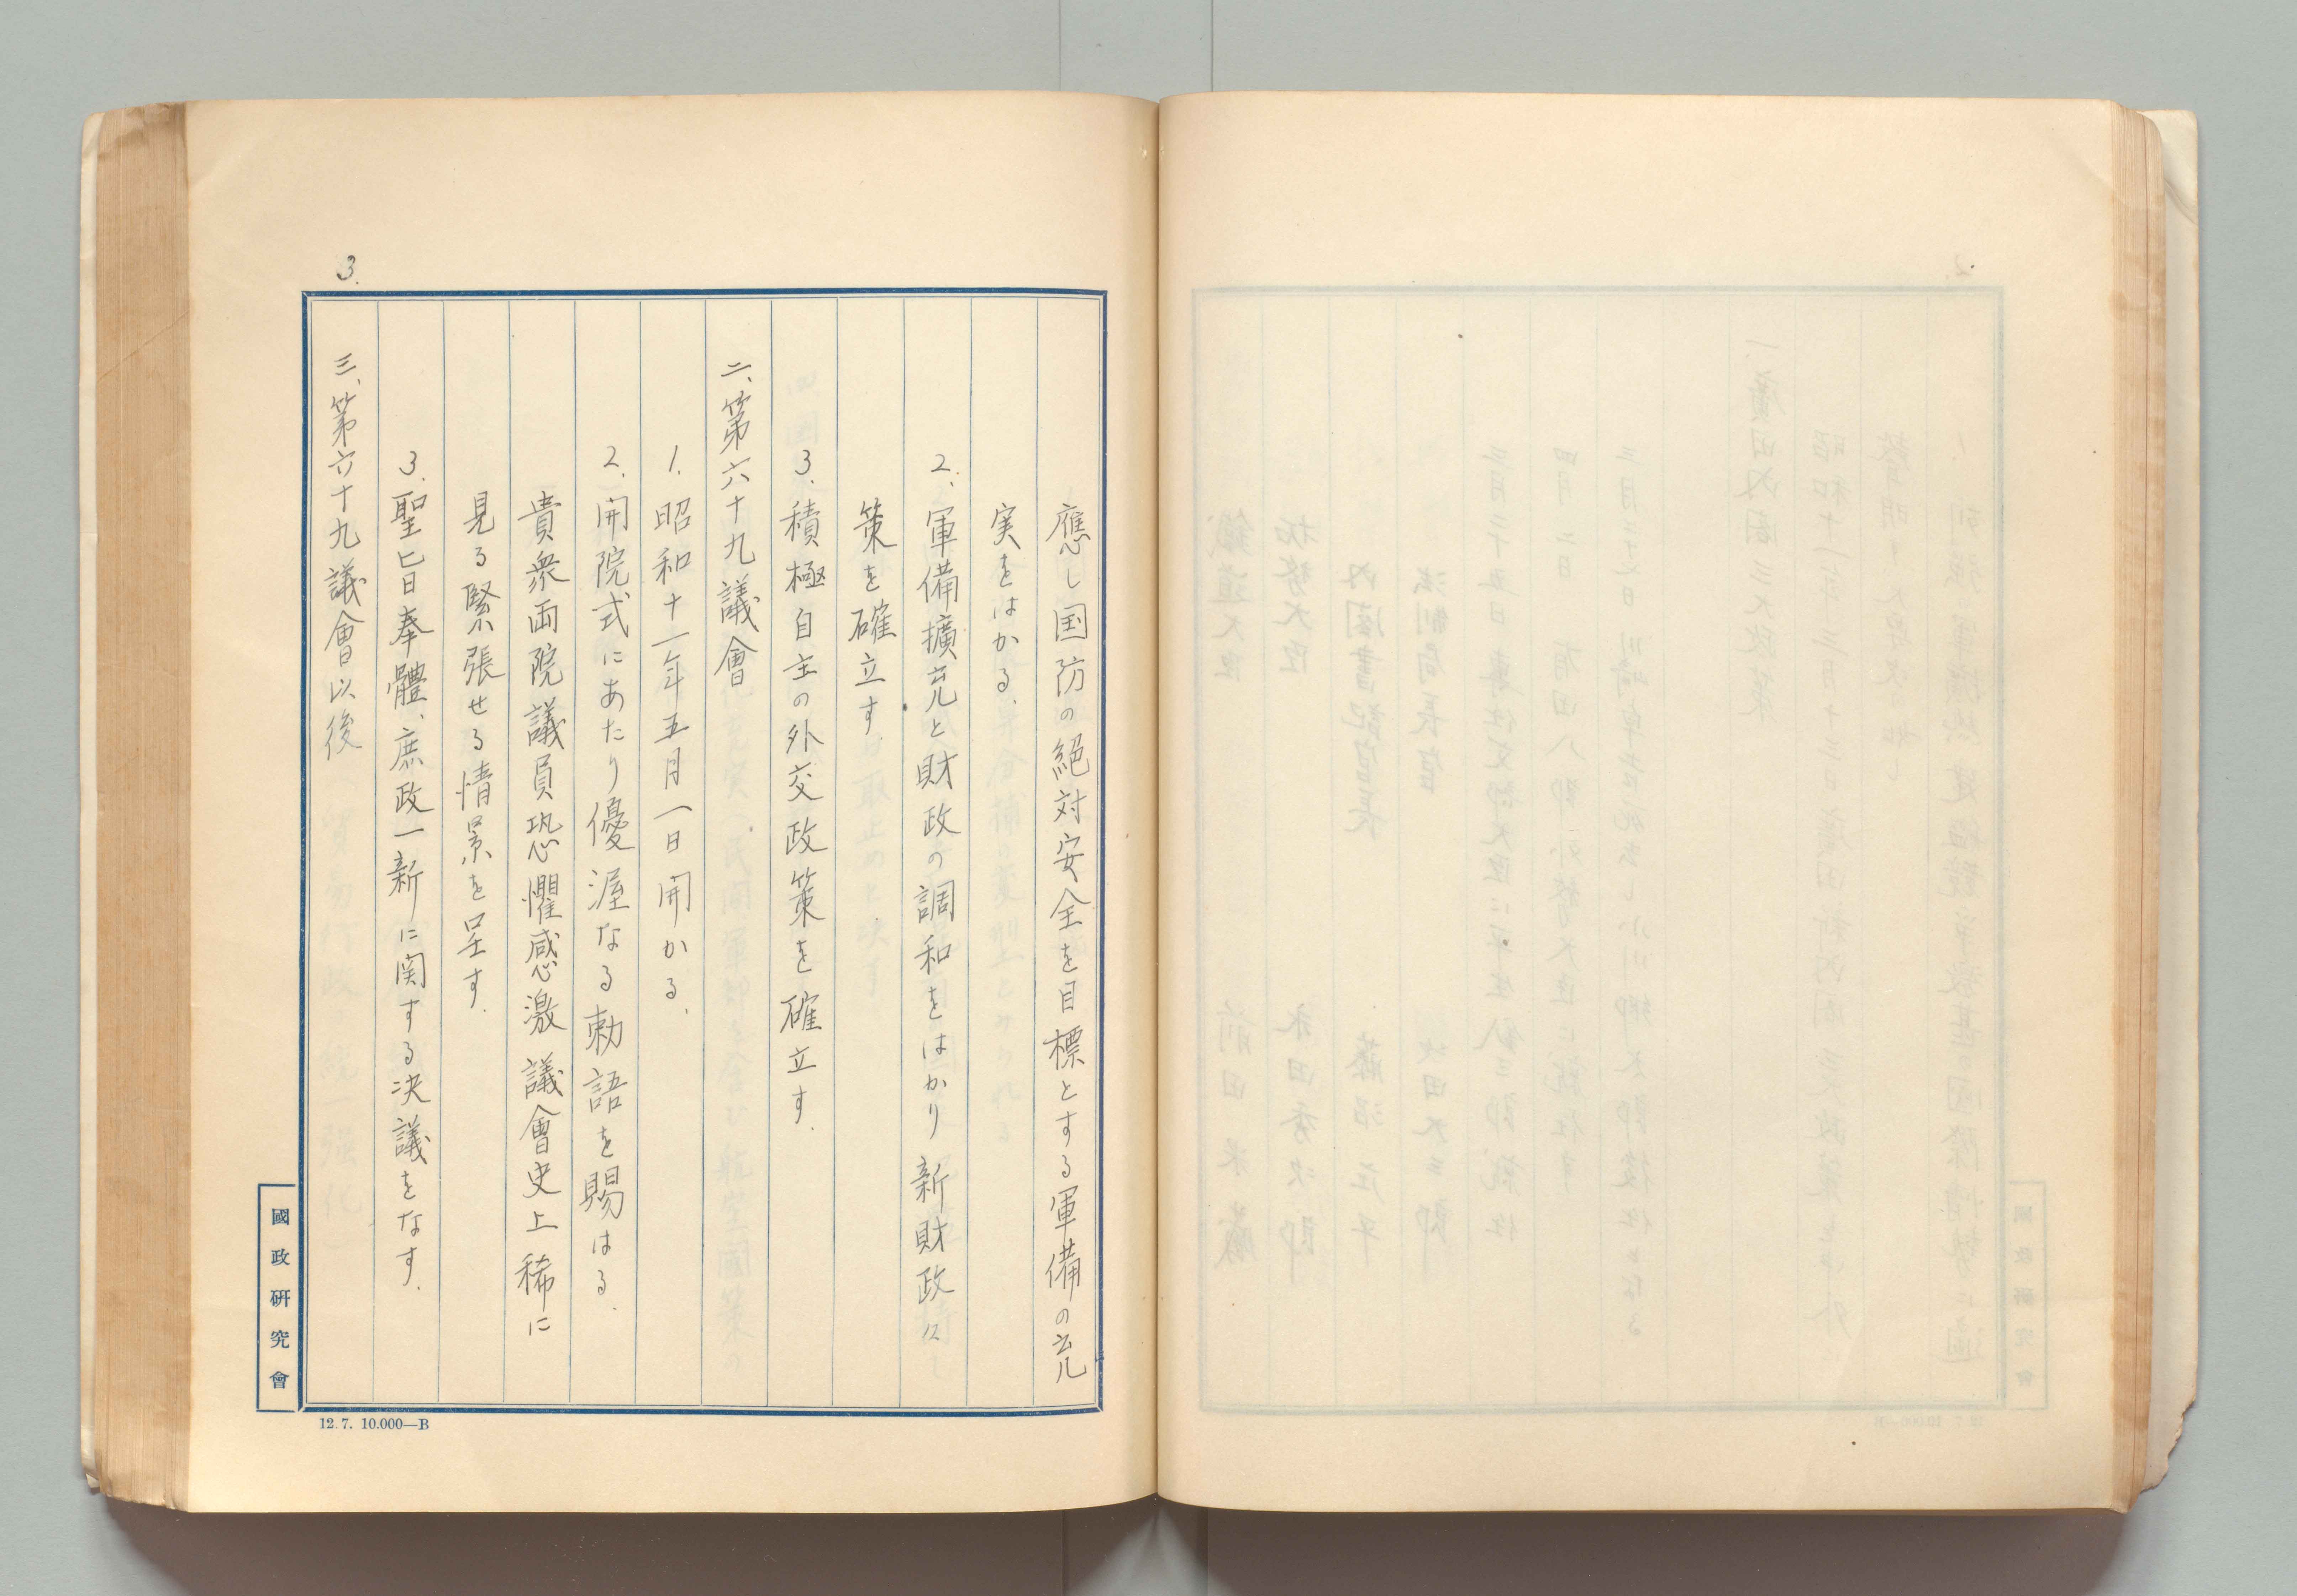 3.
應し国防の絶対安全を目標とする軍備の充
実をはかる.
2. 軍備擴充と財政の調和をはかり新財政
策を確立す.
3. 積極自主の外交政策を確立す.
二、第六十九議會
1. 昭和十一年五月一日開かる.
2. 開院式にあたり優渥なる勅語を賜はる.
貴衆両院議員恐懼感激議會史上稀に
見る緊張せる情景を呈す.
3. 聖旨奉體、庶政一新に関する決議をなす.
三、第六十九議會以後
國政研究會
12.7. 10.000—B